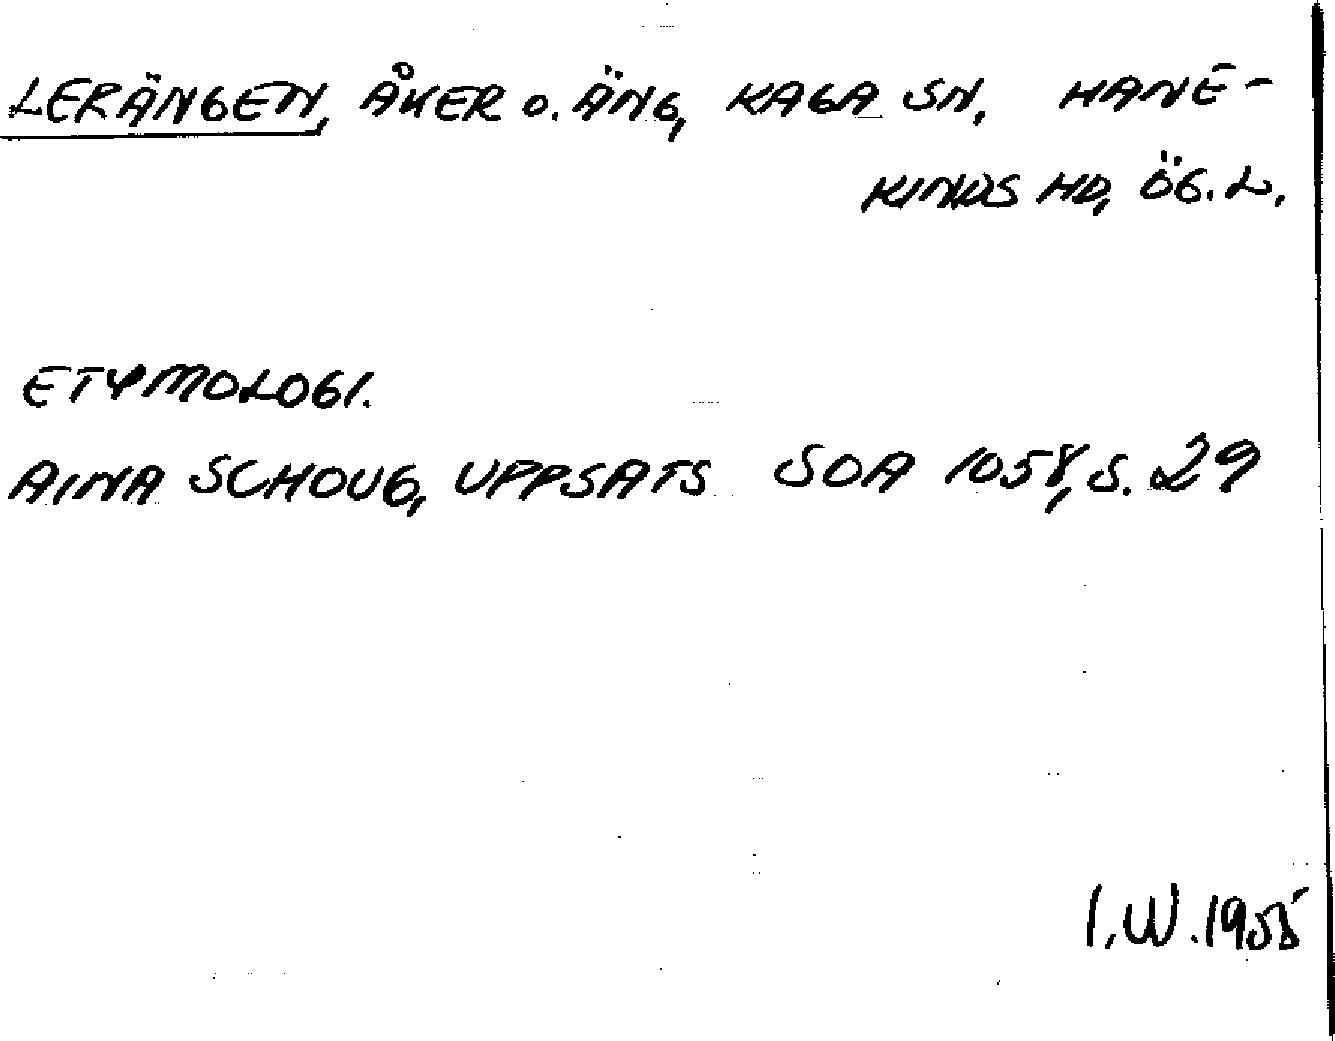 LERÄNGEN, ÅKER o. ÄNG, KAGA SN, HANE-
KINDS HD, ÖG.L.
ETYMOLOGI.
AINA SCHOUG, UPPSATS SOA 1058, S. 29
I.W.1955